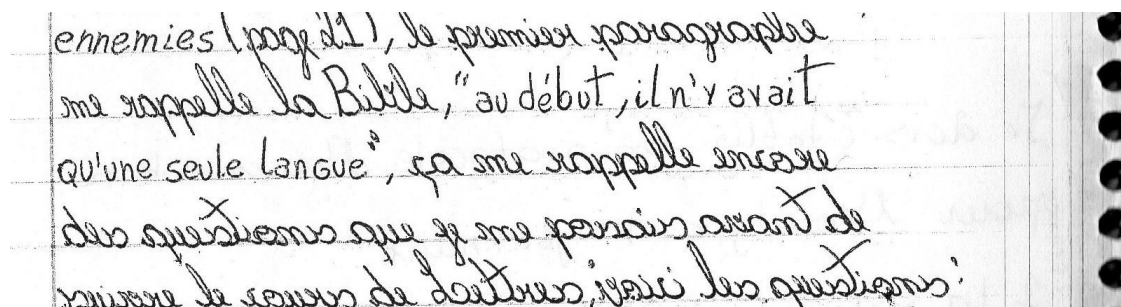 ennemies (page 21), le premier paragraphe
me rappelle la Bible, "au début, il n'y avait
qu'une seule langue", ça me rappelle encore
des questions que je me posais avant de
suivre le cours de Lettres, voici les questions: